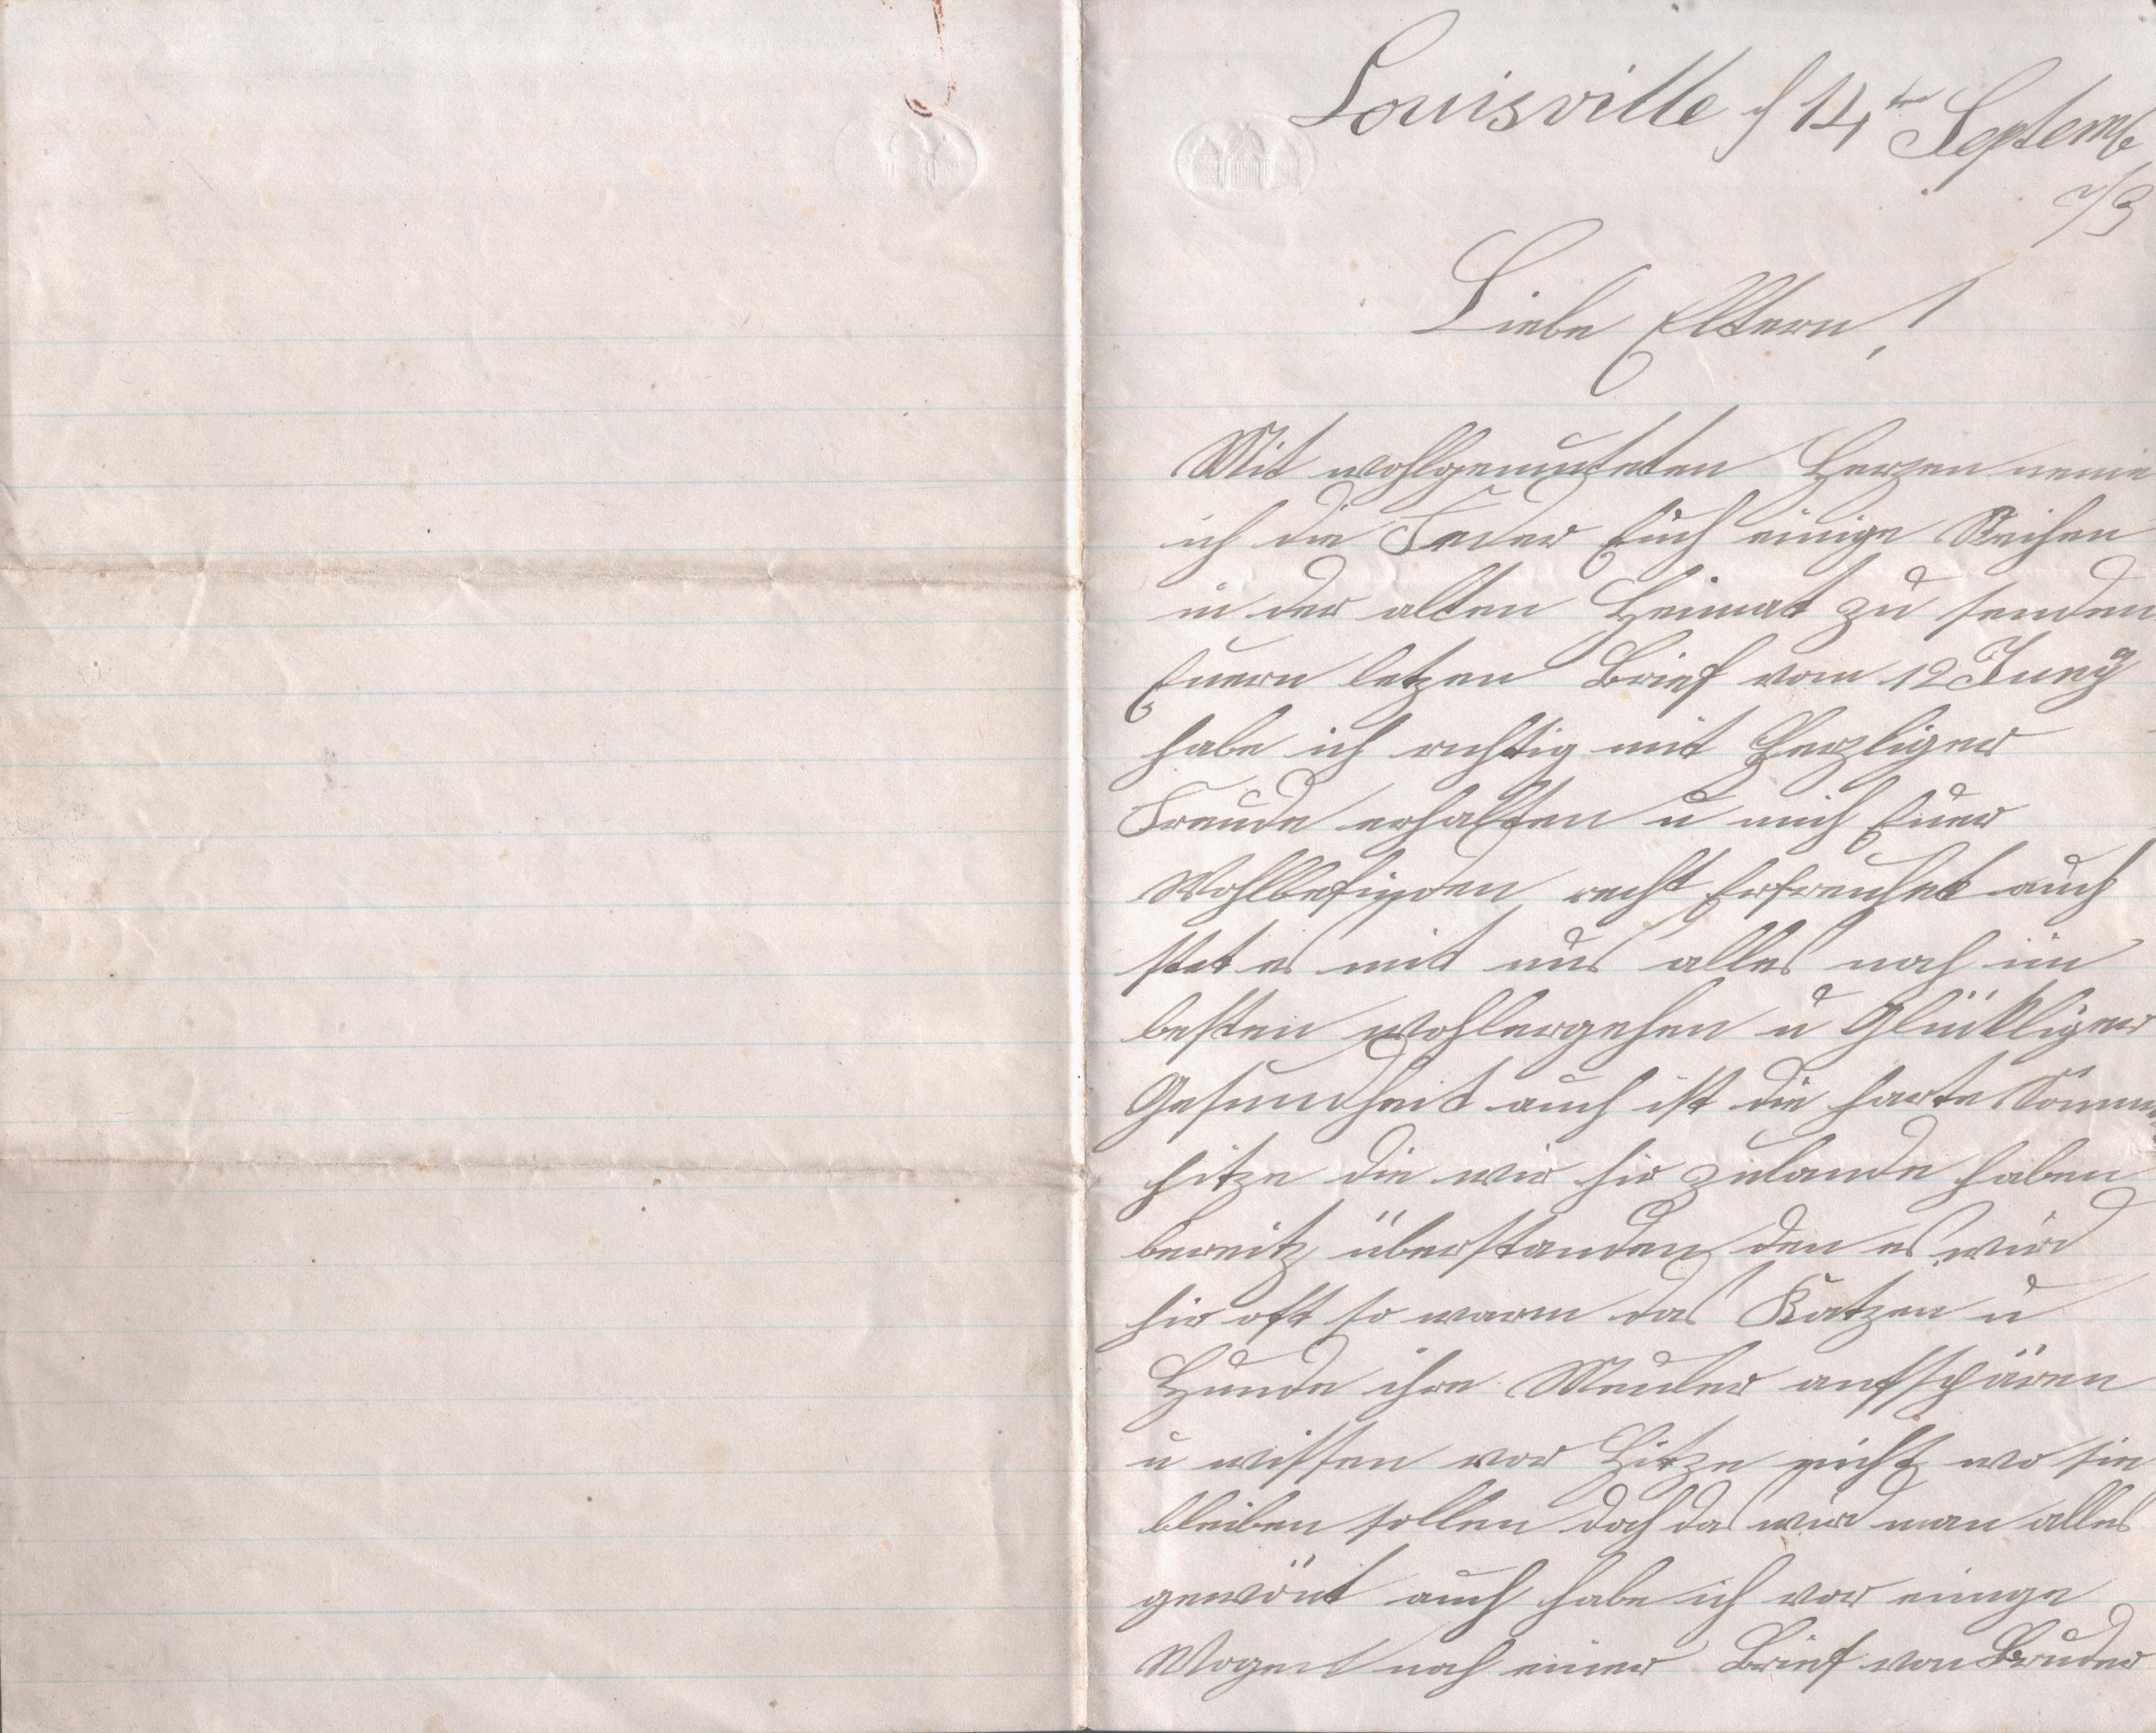 Louisville d 14ten Septemb
73
Liebe Eltern!
Mit wohlgemuteten Herzen neme
ich die Feder Euch einige Reihen
in der alten Heimat zu senden
Euern letzen Brief vom 12 Juny
habe ich richtig mit Herzliger
Freude erhalten u mich Euer
Wohlbefinden recht Erfreuhet auch
stet es mit uns alles noch im
besten wohlergehen u Glückliger
Gesundheit auch ist die harte Somme
hitze die wir hir zulande haben
bereitz überstanden den es wird
hir oft so warm das Katzen u
Hunde ihre Meuler aufspären
u wissen vor Hitze nicht wo sie
bleiben sollen doch das wird man alles
gewönt auch habe ich vor einige
Wogen noch einer Brief von Bruder